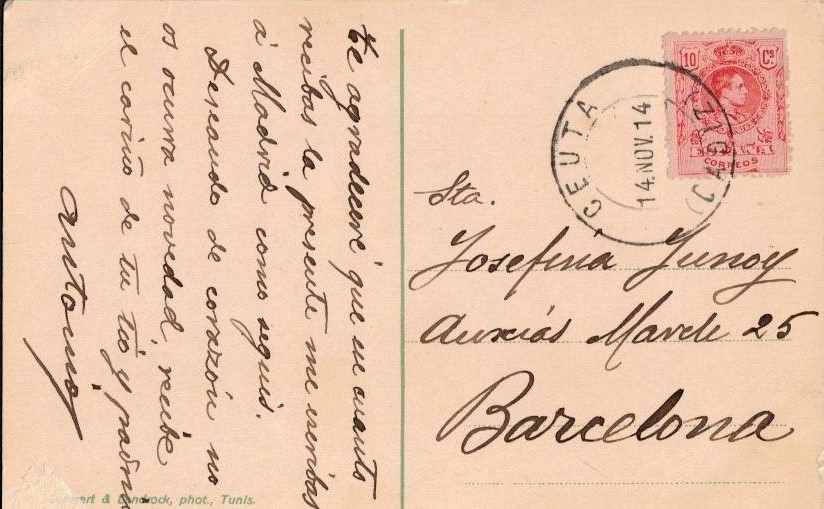 te agradeceré que en cuanto
recibas la presente me escribas
á Madrid como seguis.
Deseando de corazón no
os ocurra novedad, recibe
el cariño de tu tío y padrino
Antonio
Lehnert & Landrock, phot., Tunis.
10 Cs
ESPAÑA
CORREOS
CEUTA
14.NOV.14
(CADIZ)
Sta.
Josefina Junoy
Auxiás March 25
Barcelona